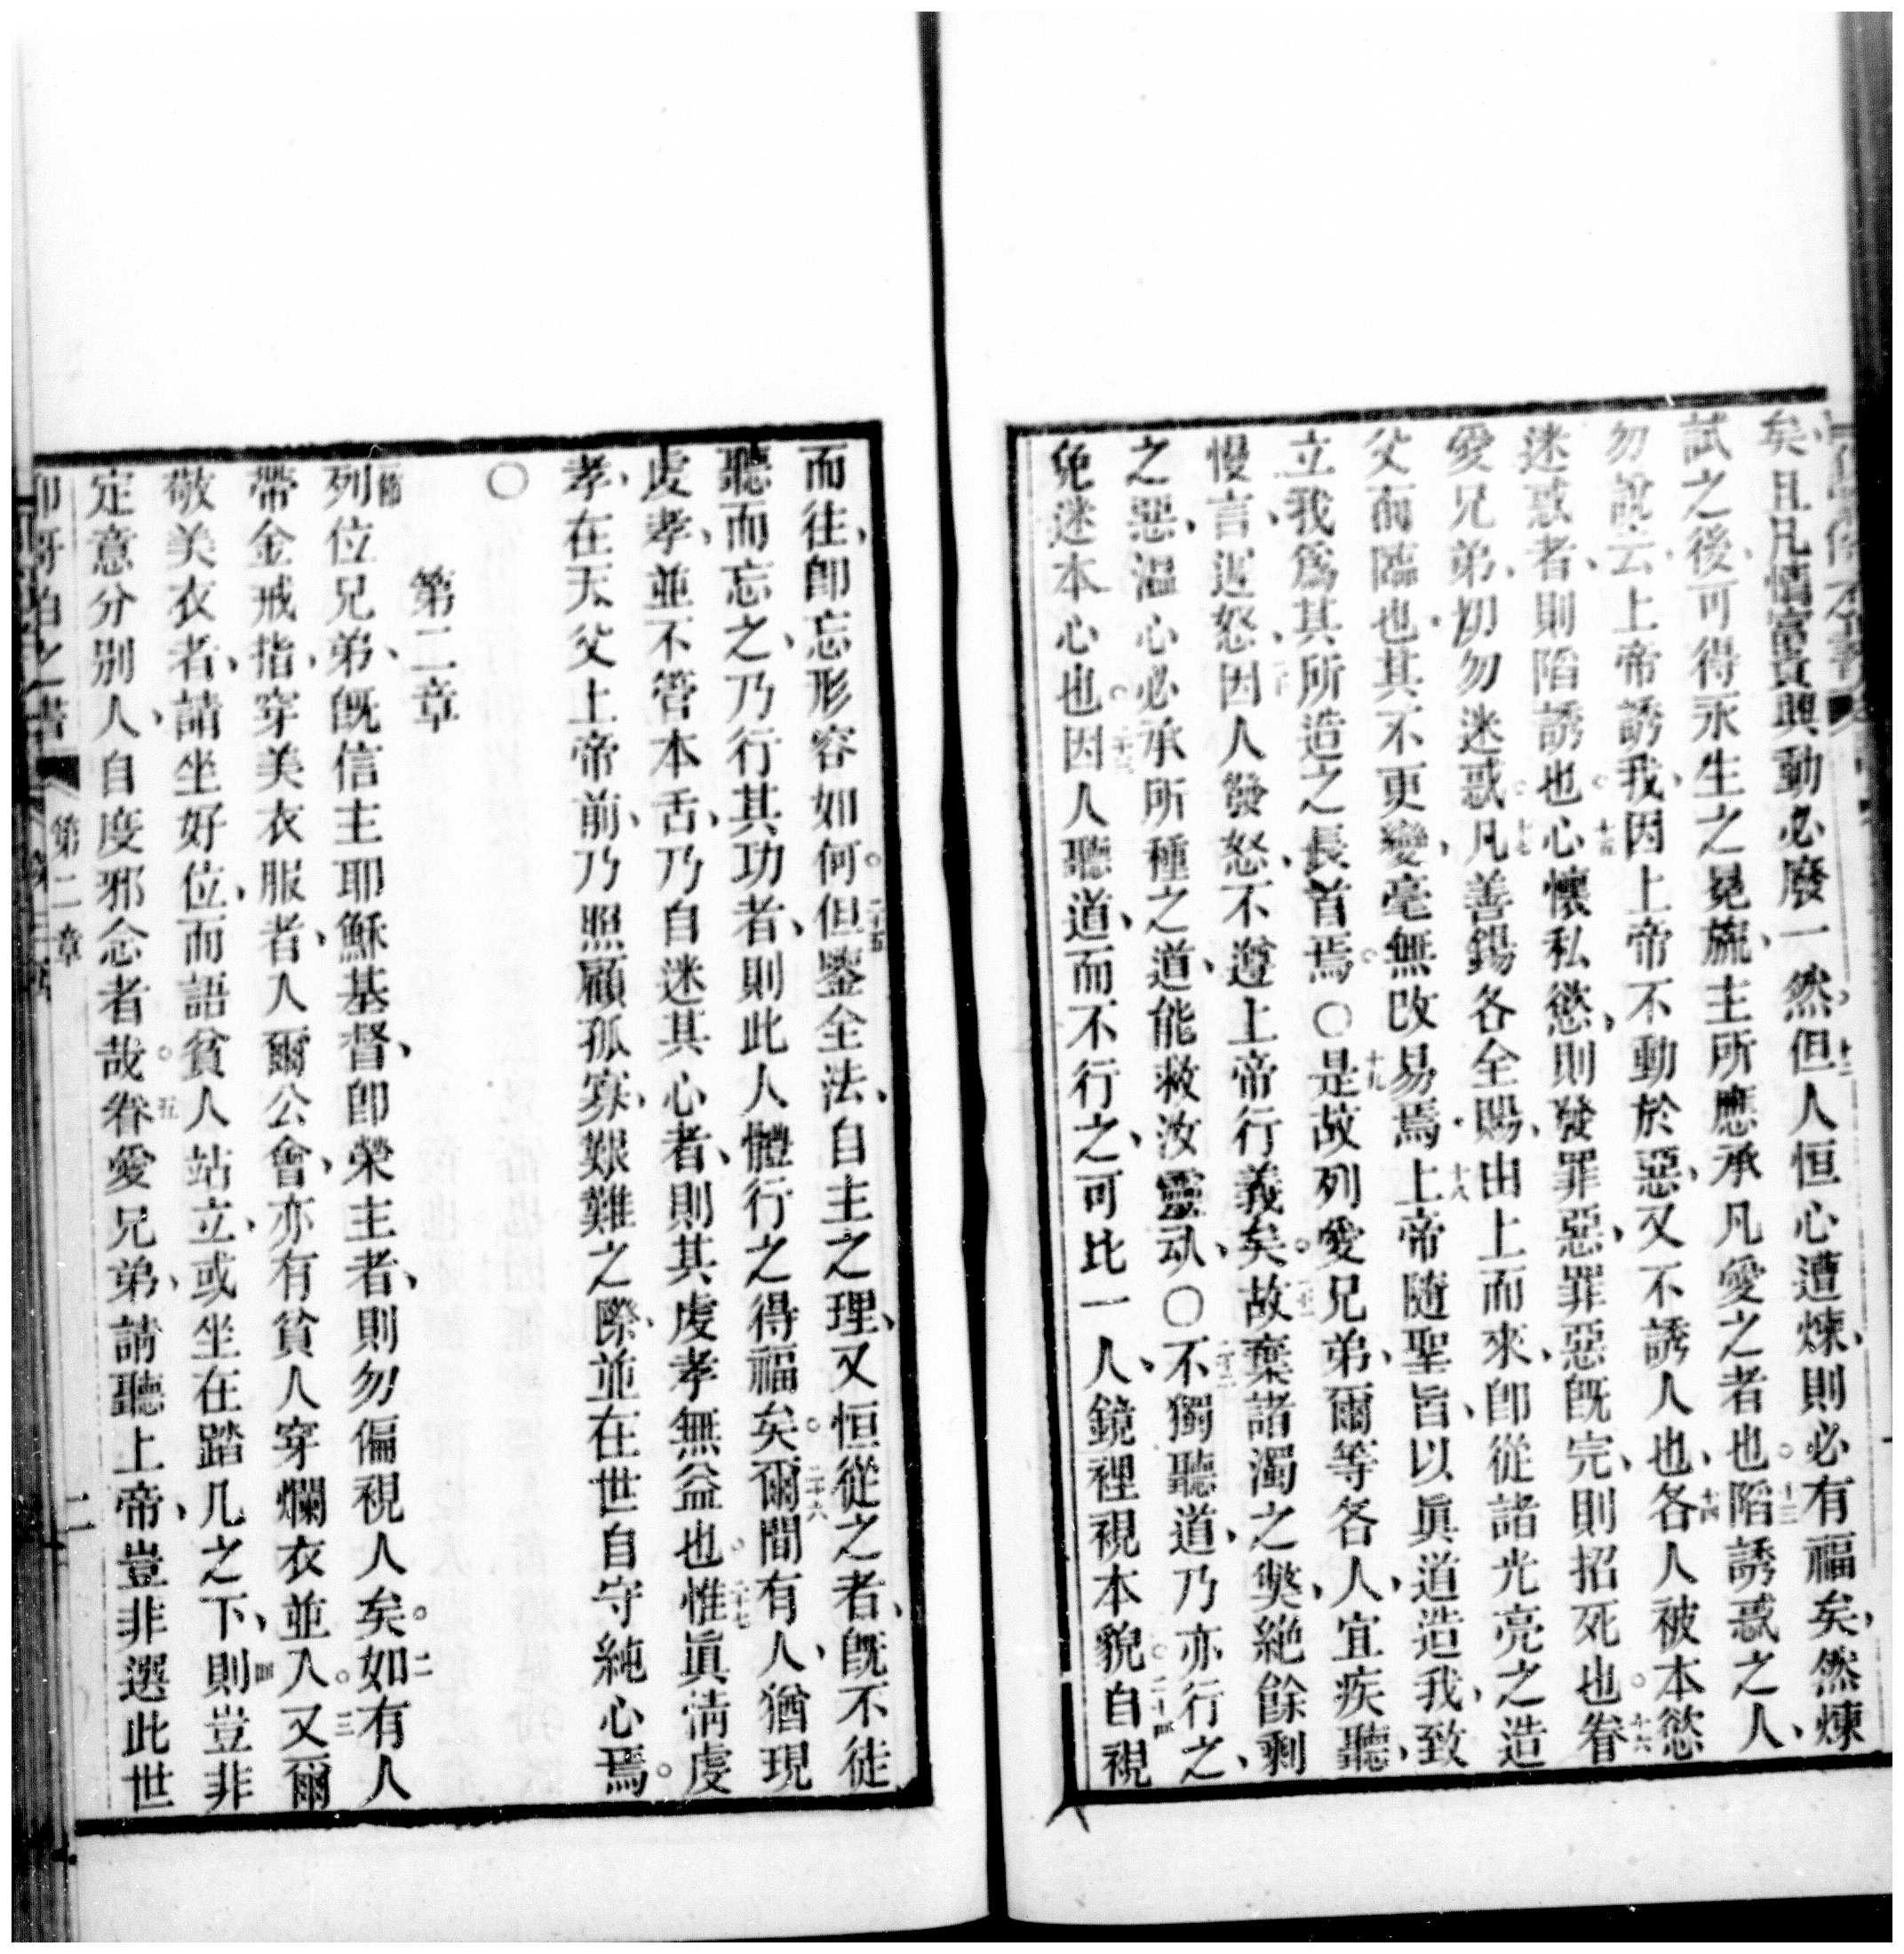 矣、且凡慎富貴興動必廢一然。十二但人恒心遭煉、則必有福矣、然煉
試之後、可得永生之冕旒、主所應承凡愛之者也。十三陷誘惑之人、
勿說云、上帝誘我、因上帝不動於惡、又不誘人也、十四各人被本慾
迷惑者、則陷誘也。十五心懷私慾、則發罪惡、罪惡既完、則招死也。十六眷
愛兄弟、切勿迷惑。十七凡善錫各全賜、由上而來、即從諸光亮之造
父而臨也、其不更變、毫無改易焉。十八上帝隨聖旨、以眞道造我、致
立我爲其所造之長首焉。〇十九是故列愛兄弟、爾等各人、宜疾聽、
慢言、遲怒、二十因人發怒、不遵上帝行義矣。二十一故棄諸濁之獘、絶餘剩
之惡、溫心必承所種之道、能救汝靈䰟、〇二十二不獨聽道、乃亦行之、
免迷本心也。二十三因人聽道、而不行之、可比一人、鏡裡視本貌。二十四自視
而往、即忘形容如何。二十五但鑒全法、自主之理、又恒從之者、既不徒
聽而忘之、乃行其功者、則此人體行之得福矣。二十六爾間有人、猶現
虔孝、並不管本舌、乃自迷其心者、則其虔孝無益也。二十七惟眞淸虔
孝、在天父上帝前、乃照顧孤寡、艱難之際、並在世自守純心焉。
〇
第二章
一節列位兄弟、既信主耶穌基督、即榮主者、則勿偏視人矣。二如有人
帶金戒指、穿美衣服者、入爾公會、亦有貧人穿爛衣並入。三又爾
敬美衣者、請坐好位、而語貧人站立、或坐在踏几之下、四則豈非
定意分別人、自度邪念者哉。五眷愛兄弟、請聽上帝、豈非選此世
第二章
二